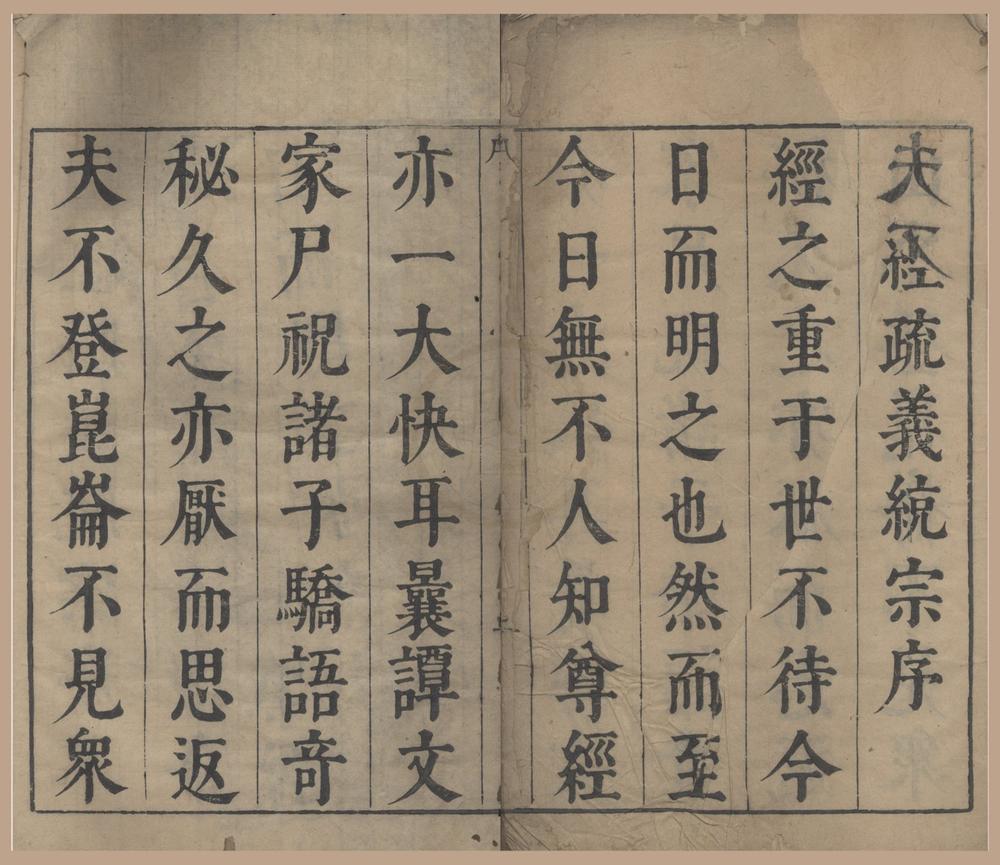 經疏義統宗序
經之重于世不待今
日而明之也然而至
今日無不人知尊經
亦一大快耳曩譚文
家尸祝諸子驕語奇
秘久之亦厭而思返
夫不登崑崙不見衆